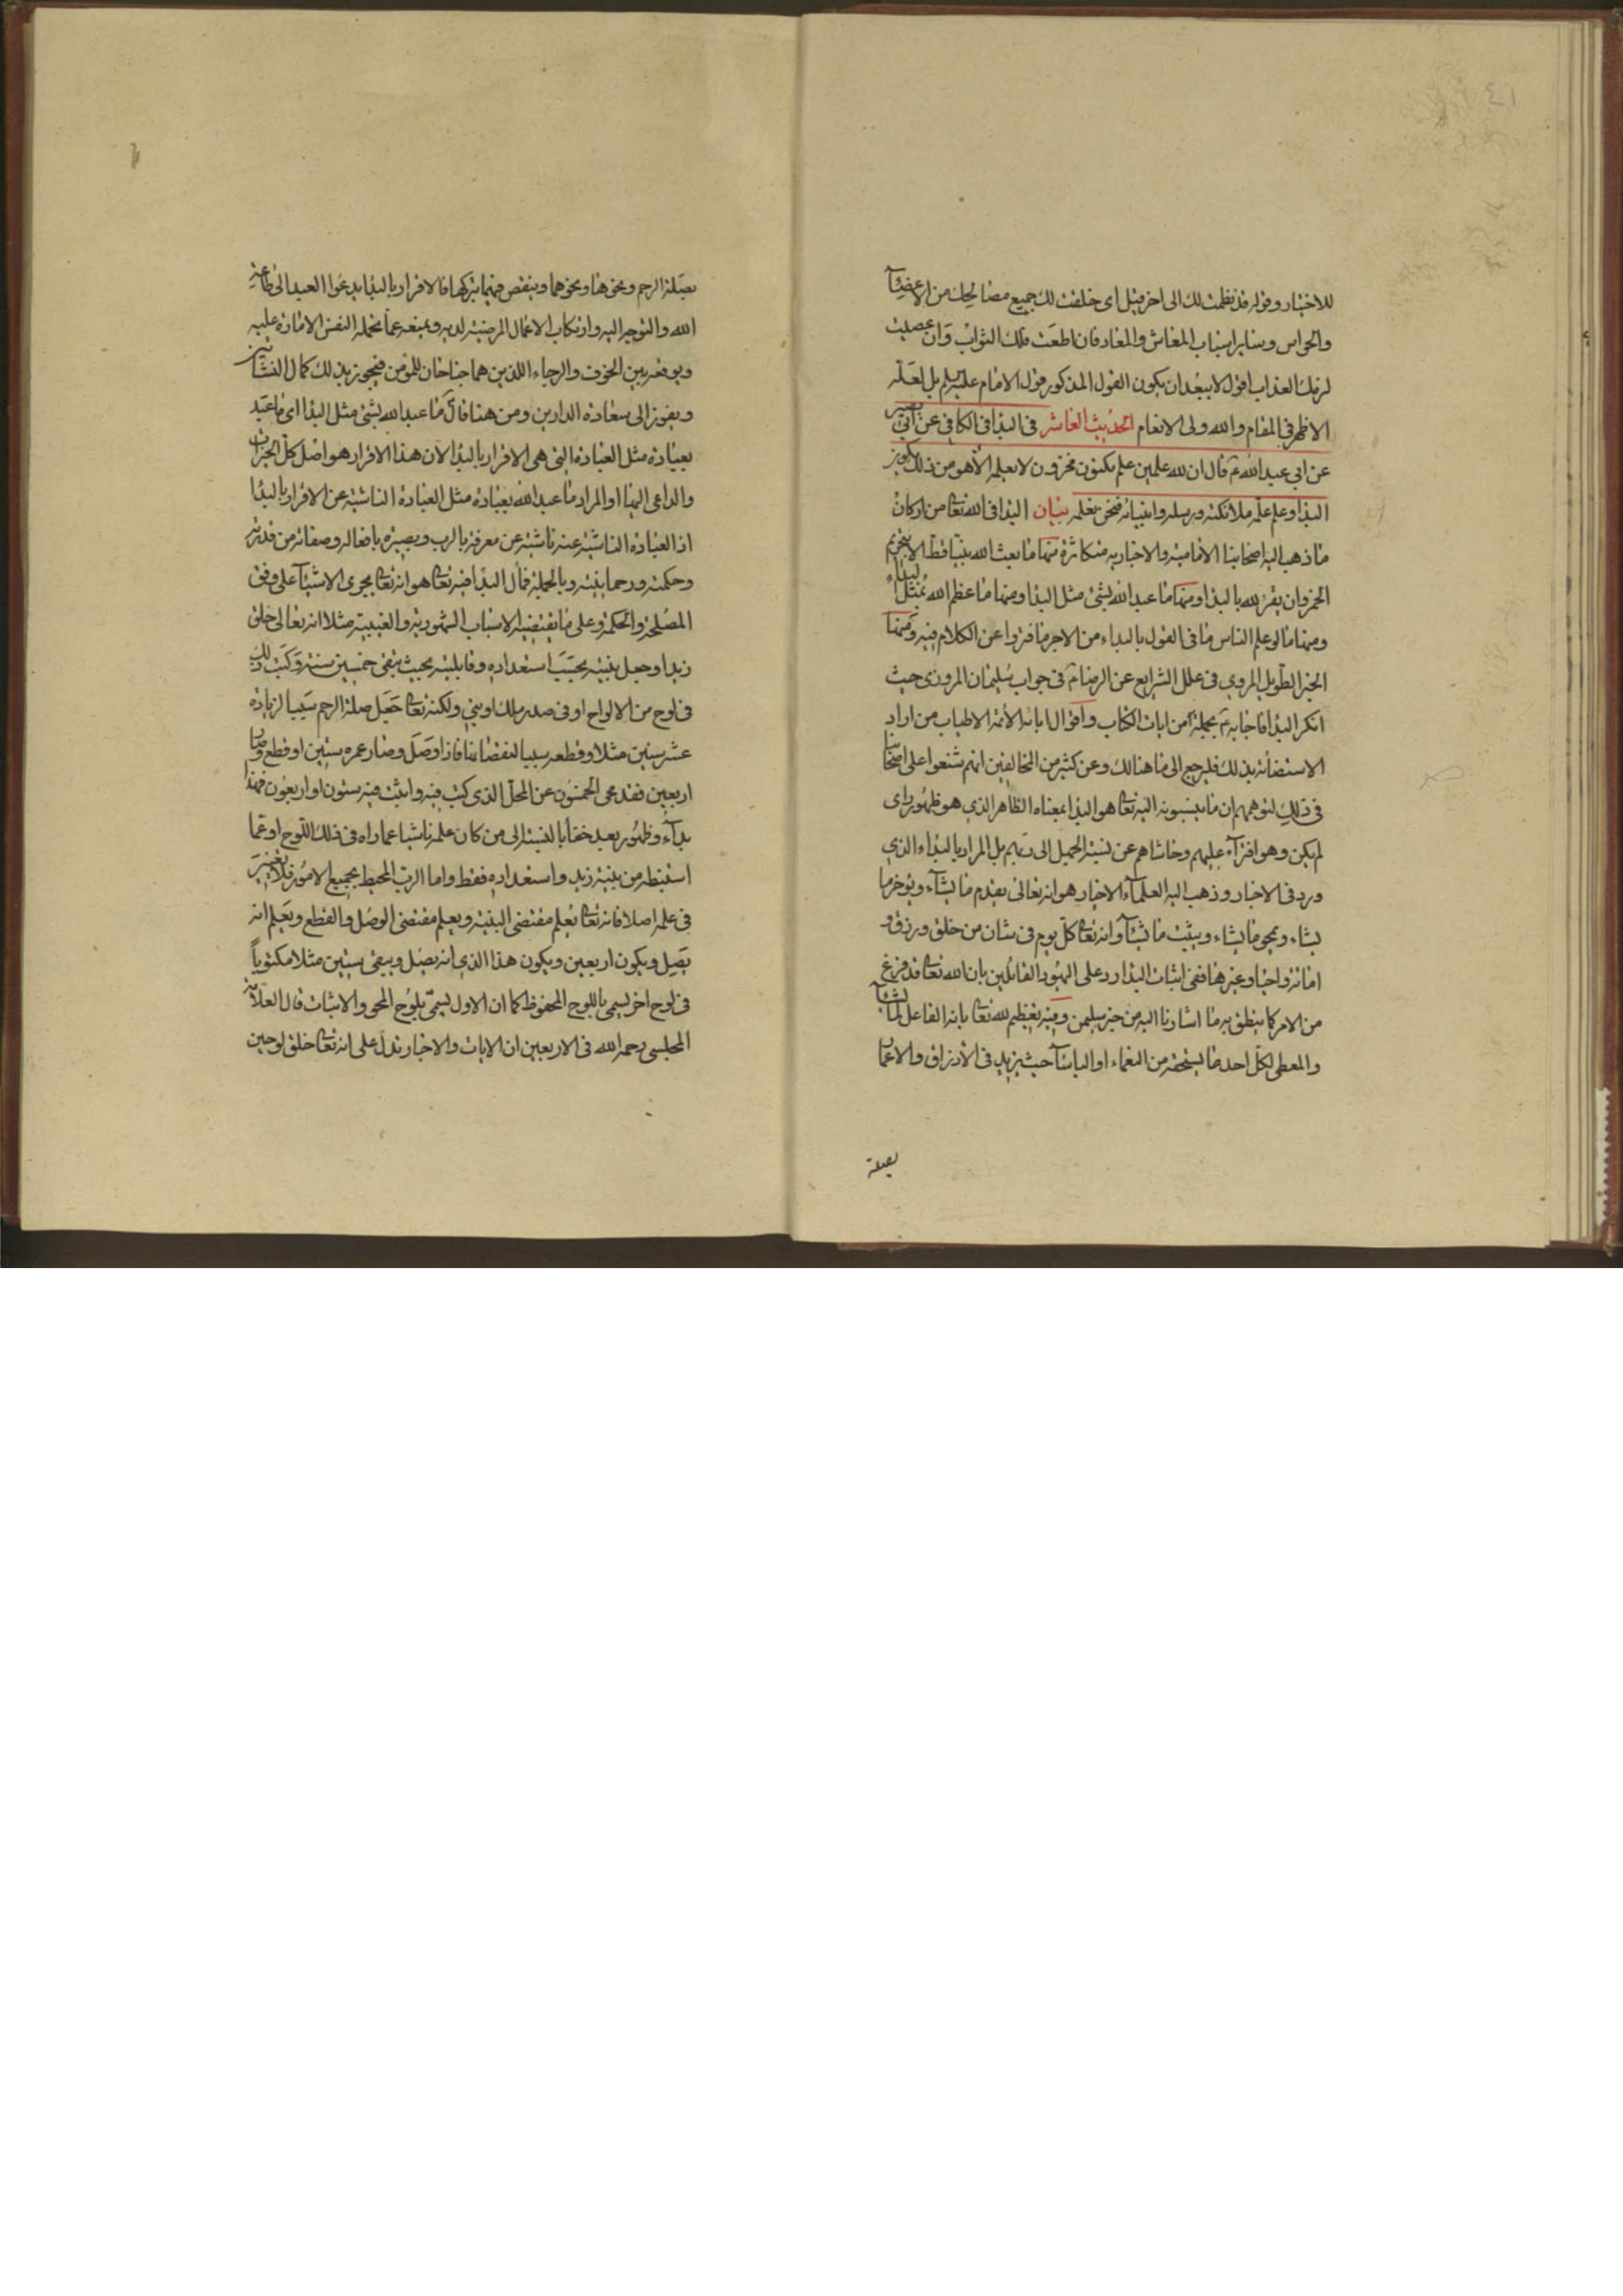 ٤١
للاختبار وقوله قد نظمت لك الى اخر قيل اى خلقت لك جميع مصالحك من الاعضآ
والحواس وساير اسباب المعاش والمعاد فان اطعت فلك الثواب وان عصيت
لزمك العذاب اقول لا يبعد ان يكون القول المذكور قول الامام عليه السلم بل لعله
الاظهر فى المقام والله ولى الانعام الحديث العاشر فى البدا فى الكافى عن ابى بصير
عن ابي عبد الله ع قال ان لله علمين علم مكنون مخزون لا يعلمه الا هو من ذلك يكون
البدا وعلم علمه ملائكته ورسله وانبيائه فنحن نعلمه بيان البدا فى الله تعا من اركان
ما ذهب اليه اصحابنا الامامية والاخبار به متكاثرة منها ما بعث الله نبيا قط الا بتحريم
الخمر وان يقر لله بالبدا ومنها ما عبد الله بشئ مثل البدا ومنها ما عظم الله بمثل البداء
ومنها ما لو علم الناس ما فى القول بالبداء من الاجر ما فتروا عن الكلام فيه ومنها
الخبر الطويل المروي فى علل الشرايع عن الرضا ع فى جواب سليمان المروزى حيث
انكر البدا فاجابه ع بجملة من ايات الكتاب واقوال ابائه الأئمة الاطياب من اراد
الاستضائة بذلك فليرجع الى ما هنالك وعن كثير من المخالفين انهم شنعوا على اصحابنا
فى ذلك لتوهمهم ان ما ينسبونه اليه تعا هو البدا بمعناه الظاهر الذي هو ظهور راى
لم يكن وهو افترآء عليهم وحاشاهم عن نسبة الجهل الى ربهم بل المراد بالبداء الذي
ورد فى الاخبار وذهب اليه العلمآء الاخيار هو انه تعالى يقدم ما يشآء ويوخر ما
يشاء ويمحو ما يشاء ويثبت ما يشآ وانه تعا كل يوم فى شان من خلق ورزق و
اماتة واحيا وغيرها ففى اثبات البدا رد على اليهود القائلين بان الله تعا قد فرغ
من الامر كما ينطق به ما اشارنا اليه من خبر سليمن وفيه تعظيم لله تعا بانه الفاعل لما يشآ
والمعطى لكل احد ما يستحقه من النعماء او الباسآ حيث يزيد فى الارزاق والاعما
بصلة
بصلة الرحم ونحوها ونحوهما وينقص فيهما بتركها فالاقرار بالبدا يدعوا العبد الى طاعة
الله والتوجه اليه وارتكاب الاعمال المرضية لديه ويمنعه عما تحمله النفس الامارة عليه
ويوقعه بين الخوف والرجاء اللذين هما جناحان للمؤمن فيحوز بذلك كمال النشاتين
ويفوز الى سعادة الدارين ومن هنا قال ع ما عبد الله بشئ مثل البدا اى ما عبد
بعبادة مثل العبادة التى هى الاقرار بالبدا لان هذا الاقرار هو اصل كل الخيرات
والداعى اليها او المراد ما عبد الله بعبادة مثل العبادة الناشية عن الاقرار بالبدا
اذ العبادة الناشية عنه ناشية عن معرفة بالرب وبصيرة بافعاله وصفاته من قدرته
وحكمته ورحمانيته وبالجملة فمآل البدا فيه تعا هو انه تعا يجرى الاشيآ على وفق
المصلحة والحكمة وعلى ما يقتضيه الاسباب الشهودية والغيبية مثلا انه تعالى خلق
زيدا وجعل بنيته بحسب استعداده وقابليته بحيث يبقى خمسين سنة وكتب ذلك
فى لوح من الالواح او فى صدر ملك او نبي ولكنه تعا جعل صلة الرحم سببا لزيادة
عشر سنين مثلا وقطعه سببا لنقصانها فاذا وصل وصار عمره ستين او قطع وصار
اربعين فقد محى الخمسون عن المحل الذى كتب فيه واثبت فيه ستون او اربعون فهذا
بدآء وظهور بعد خفاء بالنسبة الى من كان علمه ناشيا عما راه فى ذلك اللوح او عما
استنبطه من بنية زيد واستعداده فقط واما الرب المحيط بجميع الامور فلا تغيير
فى علمه اصلا فانه تعا يعلم مقتضى البنية ويعلم مقتضى الوصل والقطع ويعلم انه
يصل ويكون اربعين ويكون هذا الذي انه يصل ويبقى ستين مثلا مكتوباً
فى لوح اخر يسمى باللوح المحفوظ كما ان الاول يسمى بلوح المحو والاثبات قال العلامة
المجلسى رحمه الله فى الاربعين ان الايات والاخبار تدل على انه تعا خلق لوحين